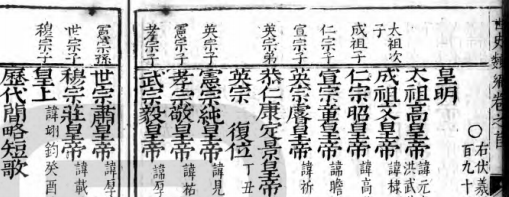 世史類編卷之首
○右伏羲
百九十
皇明
太祖高皇帝 諱元
洪武
太祖次子
成祖文皇帝 諱棣
成祖子
仁宗昭皇帝 諱高
仁宗子
宣宗章皇帝 諱瞻
宣宗子
英宗睿皇帝 諱祈
英宗弟
恭仁康定景皇帝
英宗 復位 丁丑
英宗子
憲宗純皇帝 諱見
憲宗子
孝宗敬皇帝 諱祐
孝宗子
武宗毅皇帝 諱厚
憲宗孫
世宗肅皇帝 諱厚
世宗子
穆宗莊皇帝 諱載
穆宗子
皇上 諱翊鈞癸酉
歷代閒略短歌